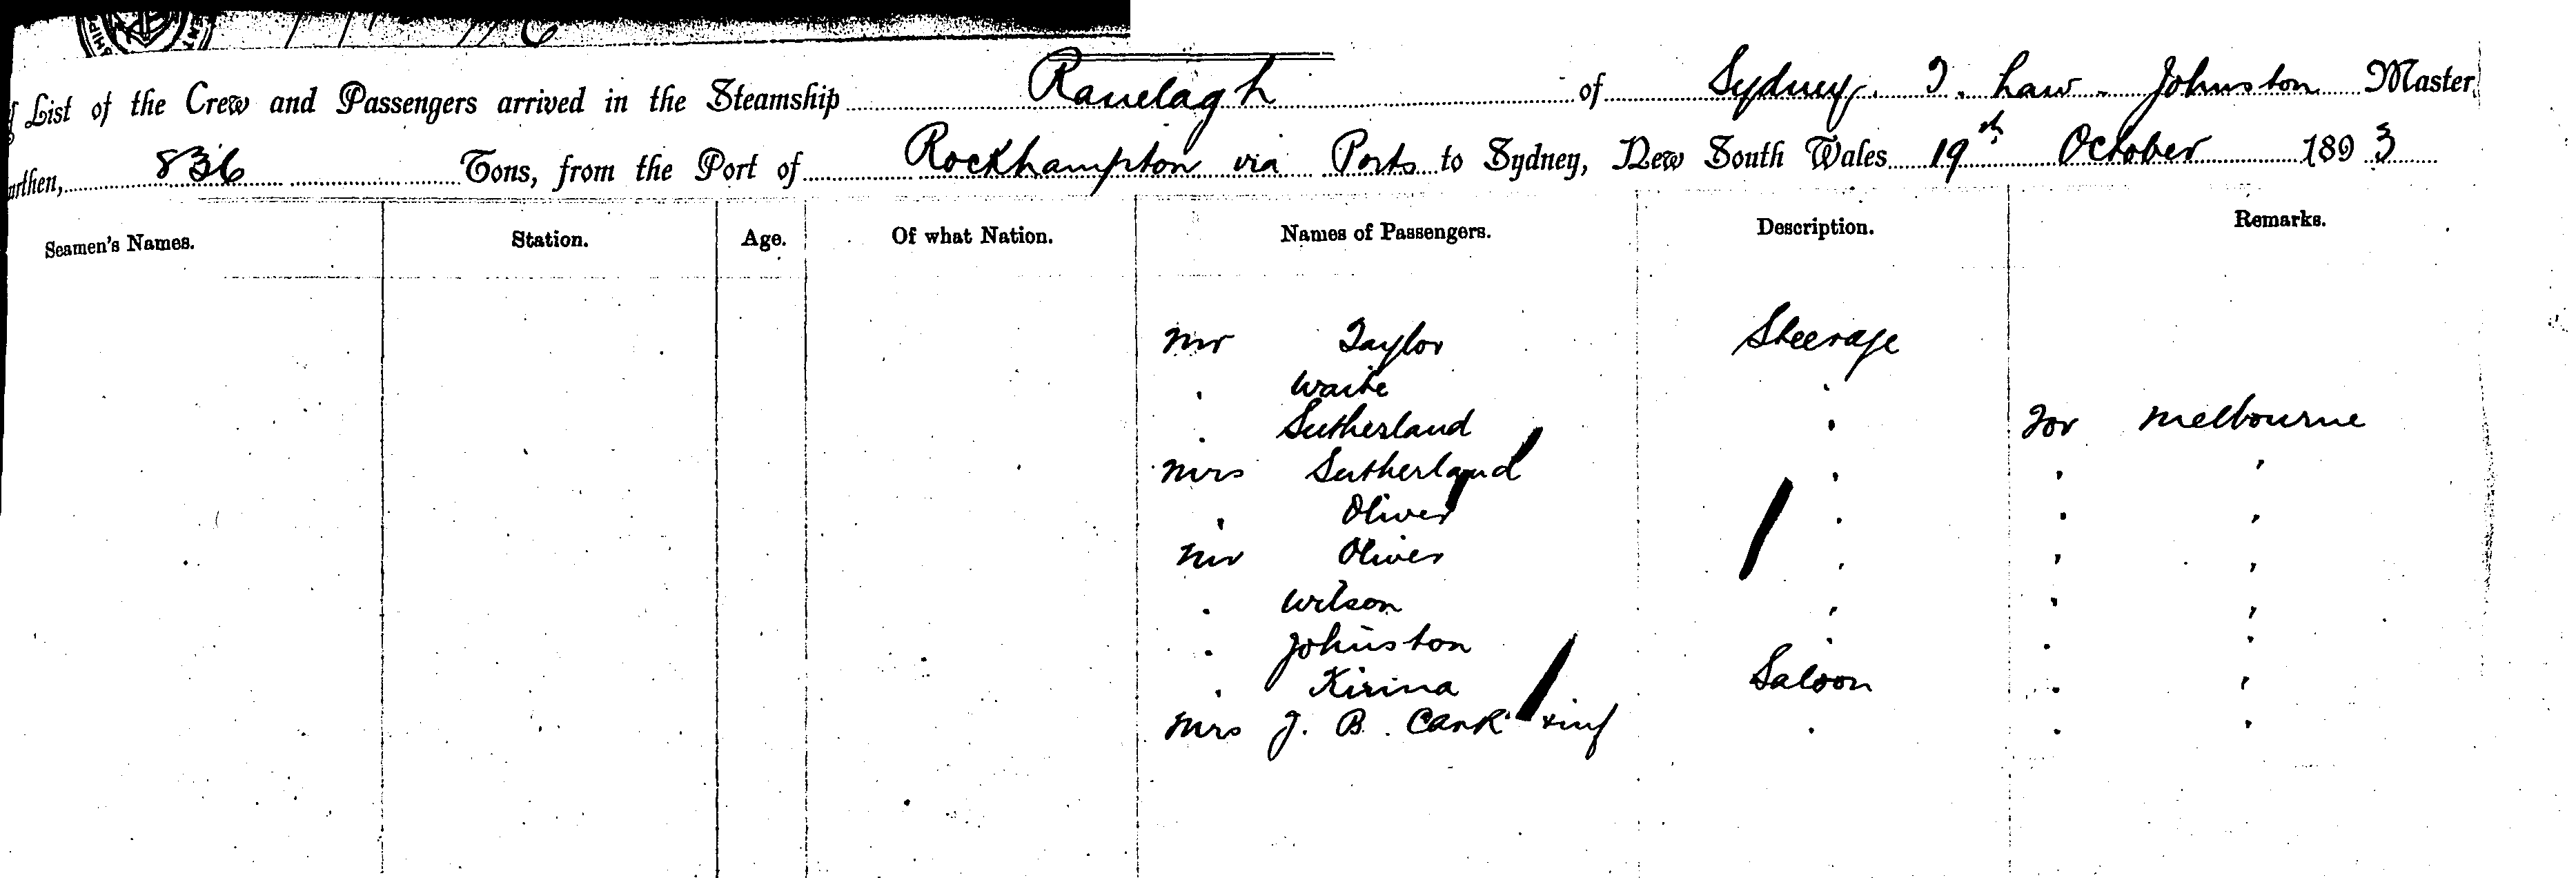 List of the Crew and Passengers arrived in the Steamship Ranelagh of Sydney. T. Law - Johnston Master
836 Tons, from the Port of Rockhampton via Ports to Sydney, New South Wales 19th October 1893
Seamen's Names. Station. Age. Of what Nation. Names of Passengers. Description. Remarks.
Mr Taylor Steerage
" Waite "
" Sutherland " For Melbourne
Mrs Sutherland " " "
" Oliver " " "
Mr Oliver " " "
" Wilson " " "
" Johnston " " "
" Kirina Saloon " "
Mrs J. B. " " "